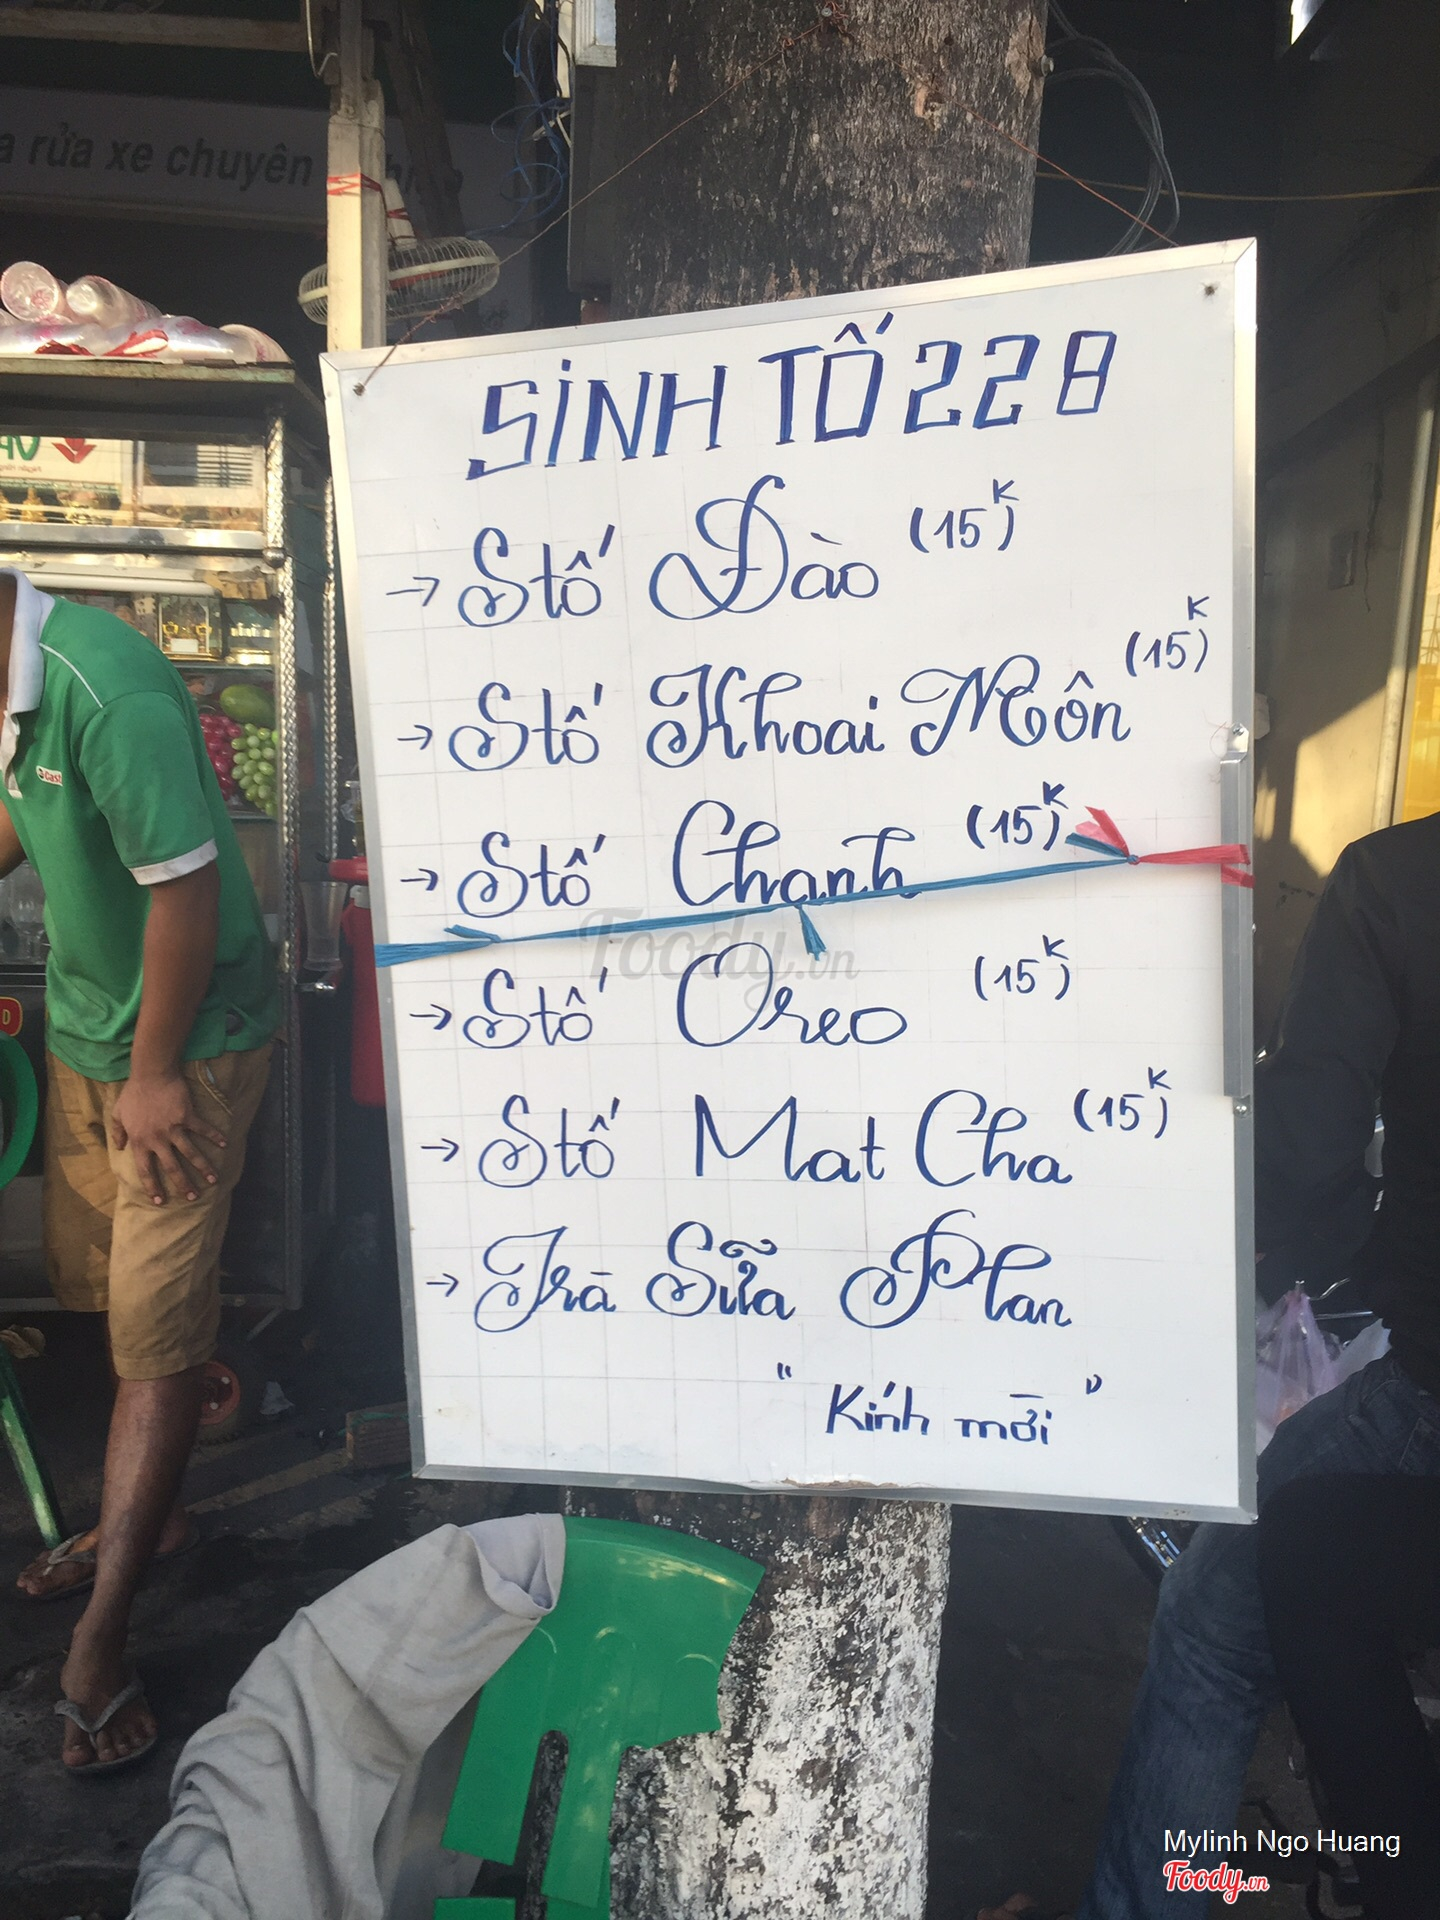 a rửa xe chuyên
SINH TỐ 228
→ Stố Đào (15K)
→ Stố Khoai Môn (15K)
→ Stố Chanh (15K)
→ Stố Oreo (15K)
→ Stố Mat Cha (15K)
→ Trà Sữa Plan
" Kính mời "
Foody.vn
Mylinh Ngo Huang
Foody.vn